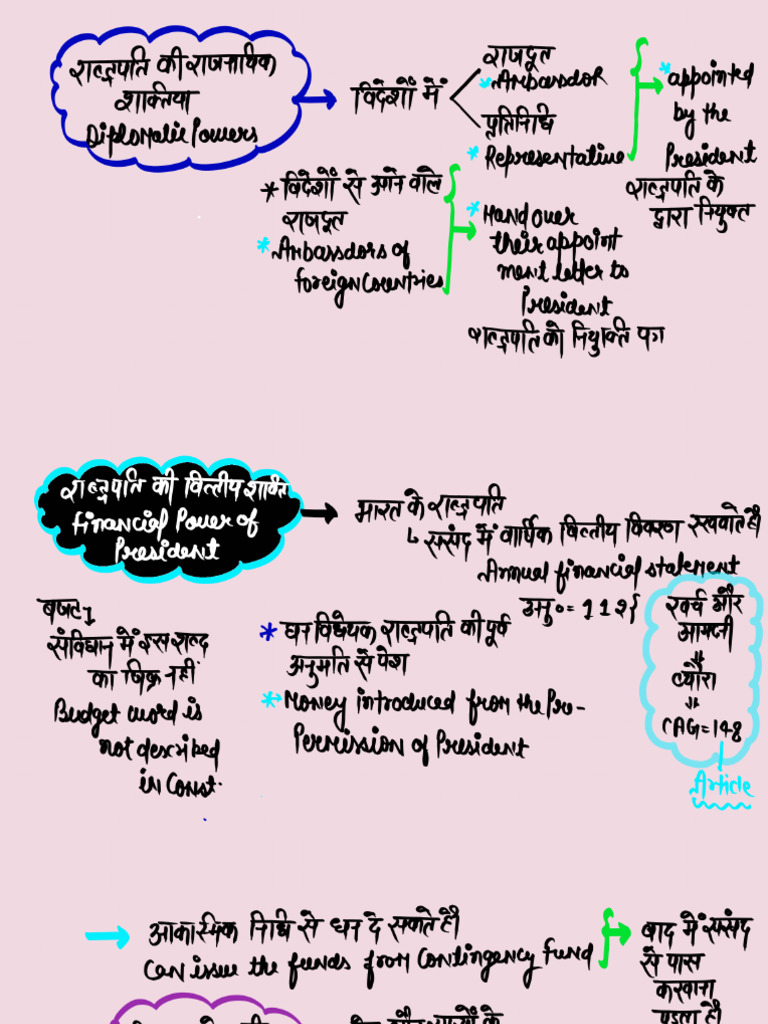 राष्ट्रपति की राजनायिक
शक्तिया
Diplomatic Powers
विदेशों में
राजदूत
*Ambassdor
प्रतिनिधि
* Representative
* appointed
by the
President
राष्ट्रपति के
द्वारा नियुक्त
* विदेशों से आने वाले
राजदूत
* Ambassdors of
foreign Countries
* Hand over
their appoint
ment letter to
President
राष्ट्रपति को नियुक्ति पत्र
राष्ट्रपति की वित्तीय शक्ति
financial Power of
President
भारत के राष्ट्रपति
संसद में वार्षिक वित्तीय विवरण रखवाते है।
Annual financial statement
अनु०= 112}
खर्च और
आमदनी
ब्यौरा
CAG=148
Article
बजट
संविधान में इस शब्द
का जिक्र नहीं
Budget word is
not described
in Const.
* धन विधेयक राष्ट्रपति की पूर्व
अनुमति से पेश
* Money introduced from the Pre-
Permission of President
→ आकास्मिक निधि से धन दे सकते है।
Can issue the funds from Contingency Fund
बाद में संसद
से पास
करवाना
पड़ता है।